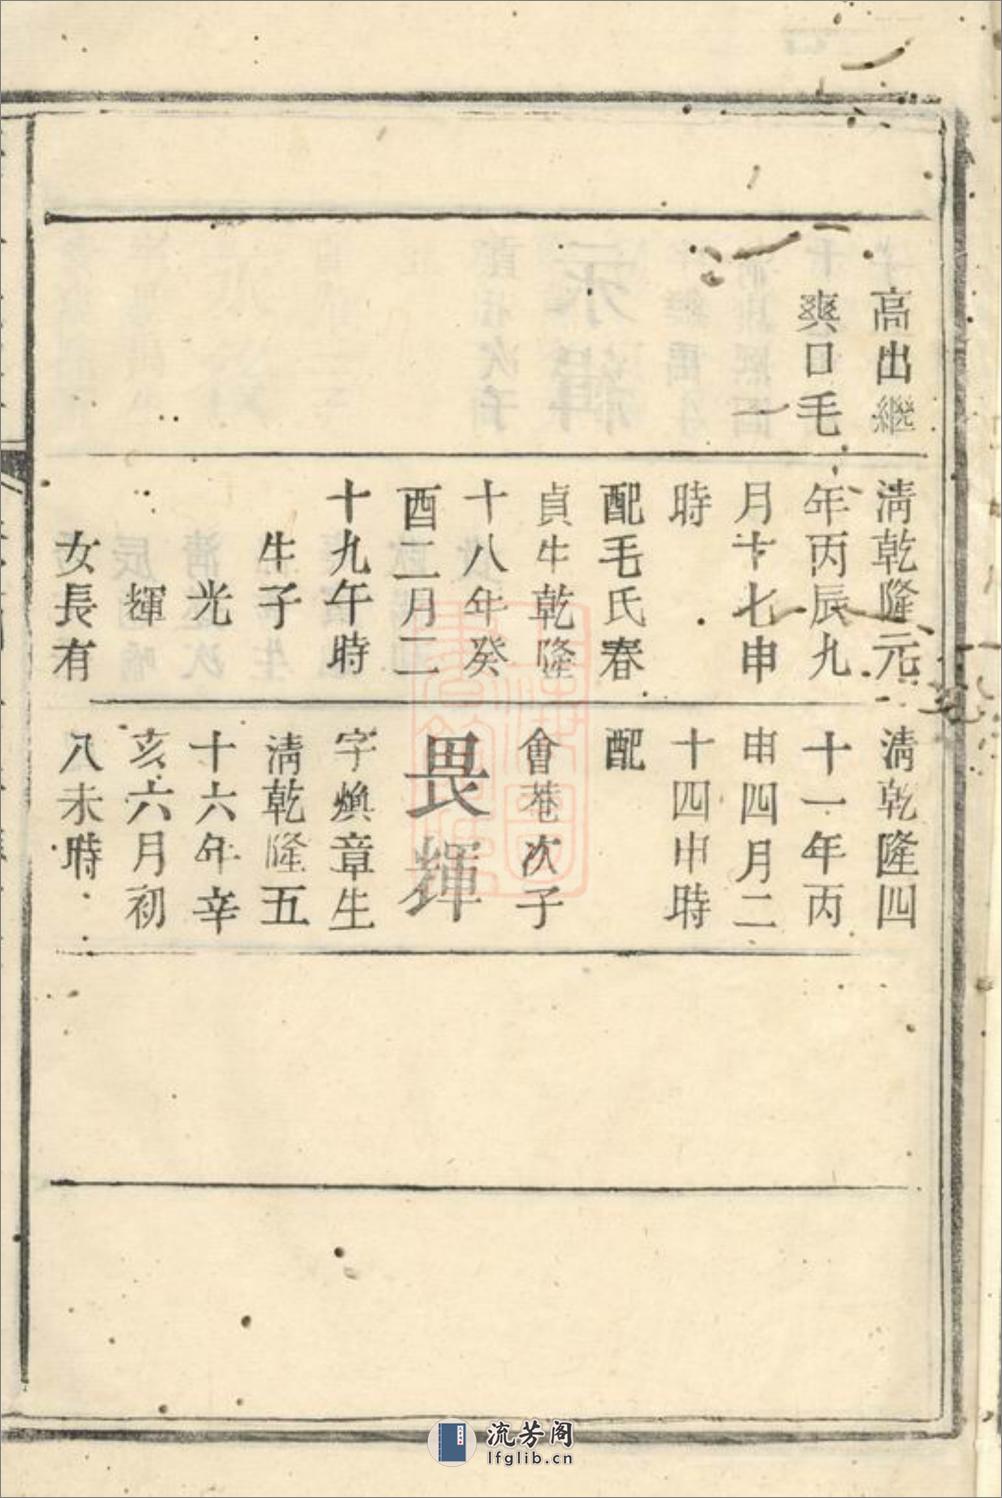 高出繼
爽口毛
清乾隆元
年丙辰九
月十七申
時
配毛氏春
貞生乾隆
十八年癸
酉二月二
十九午時
生子
光
輝
女長有
清乾隆四
十一年丙
申四月二
十四申時
配
會菴次子
畏輝
字煥章生
清乾隆五
十六年辛
亥六月初
八未時
流芳阁
lfglib.cn